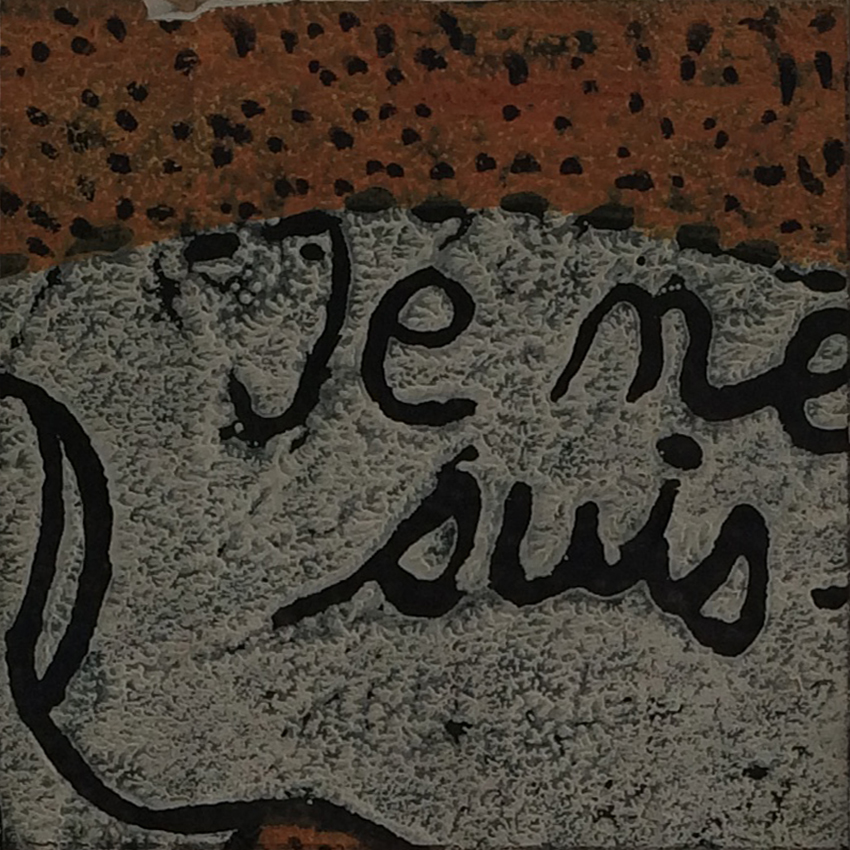 Je ne
suis